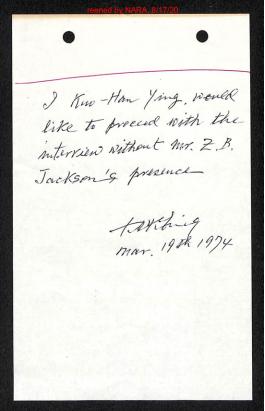 reened by NARA, 8/17/20
I Kuo-Han Ying, would
like to proceed with the
interview without Mr. Z. B.
Jackson's presence
Mar. 19th 1974